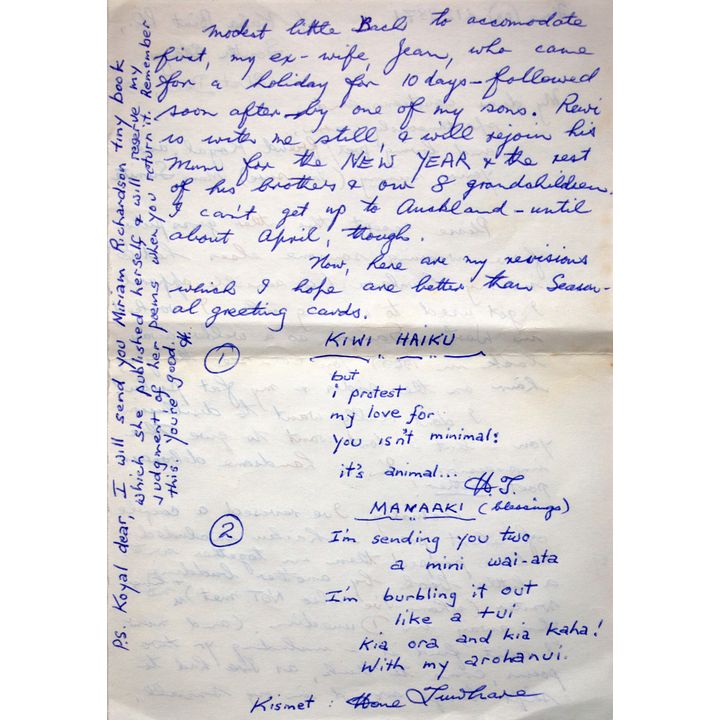 modest little Bach to accomodate
first, my ex-wife, Jean, who came
for a holiday for 10 days - followed
soon after by one of my sons. Rewi
is with me still, & will rejoin his
Mum for the NEW YEAR & the rest
of his brothers & our 8 grandchildren.
I can't get up to Auckland - until
about April, though.
Now, here are my revisions
which I hope are better than Season-
al greeting cards.
1
KIWI HAIKU
but
i protest
my love for
you isn't minimal:
it's animal...
H.T.
2
MANAAKI (blessings)
I'm sending you two
a mini wai-ata
I'm burbling it out
like a tui
Kia ora and kia kaha!
With my arohanui.
Kismet: Hone Tuwhare
P.S. Koyal dear, I will send you Miriam Richardson tiny book
which she published herself & will reserve my
judgment of her poems when you return it. Remember
this. You're good. H.